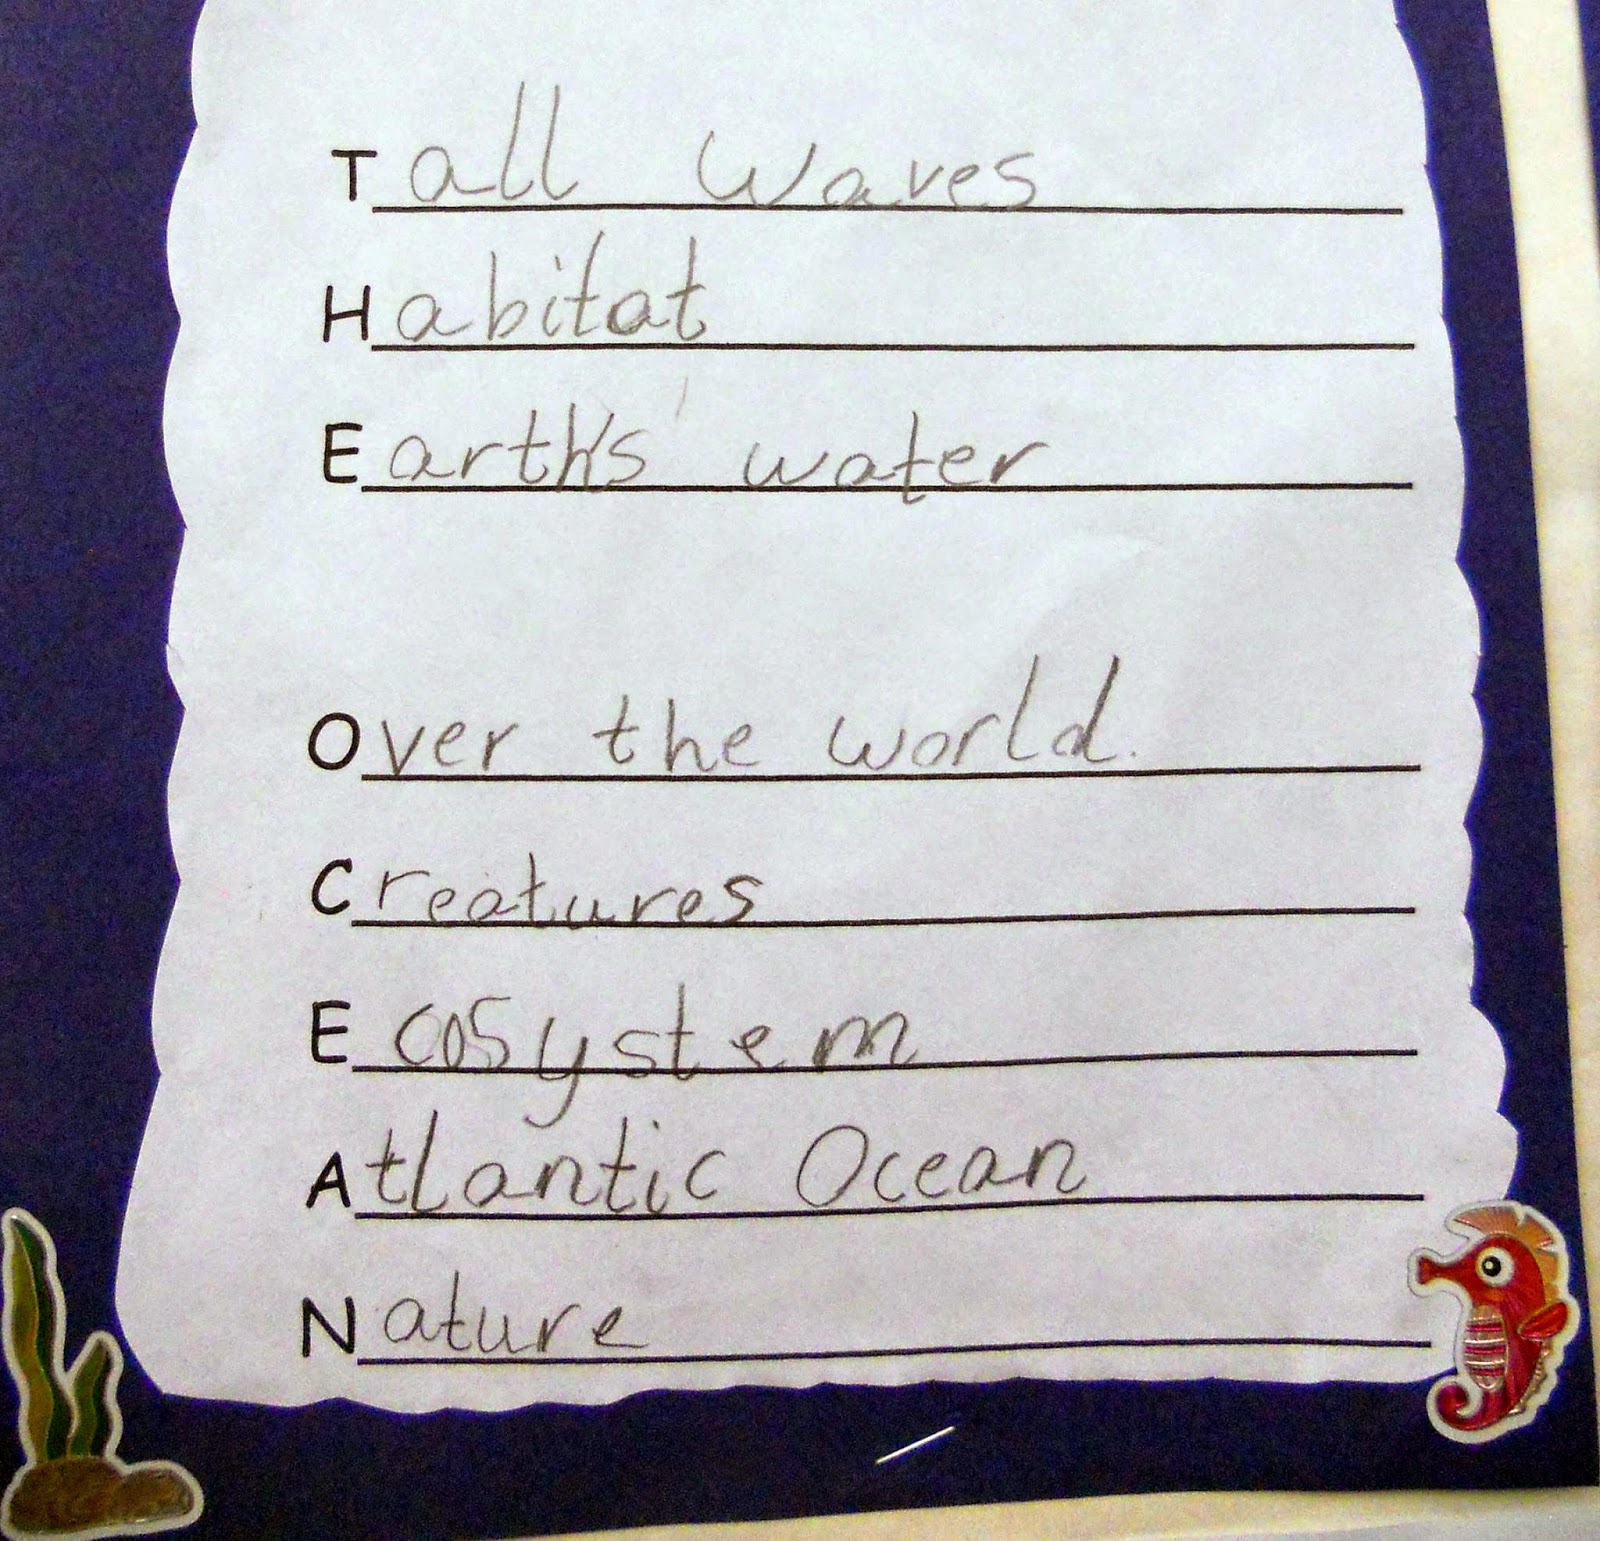 Tall waves
Habitat
Earth's water
Over the world.
Creatures
Ecosystem
Atlantic Ocean
Nature